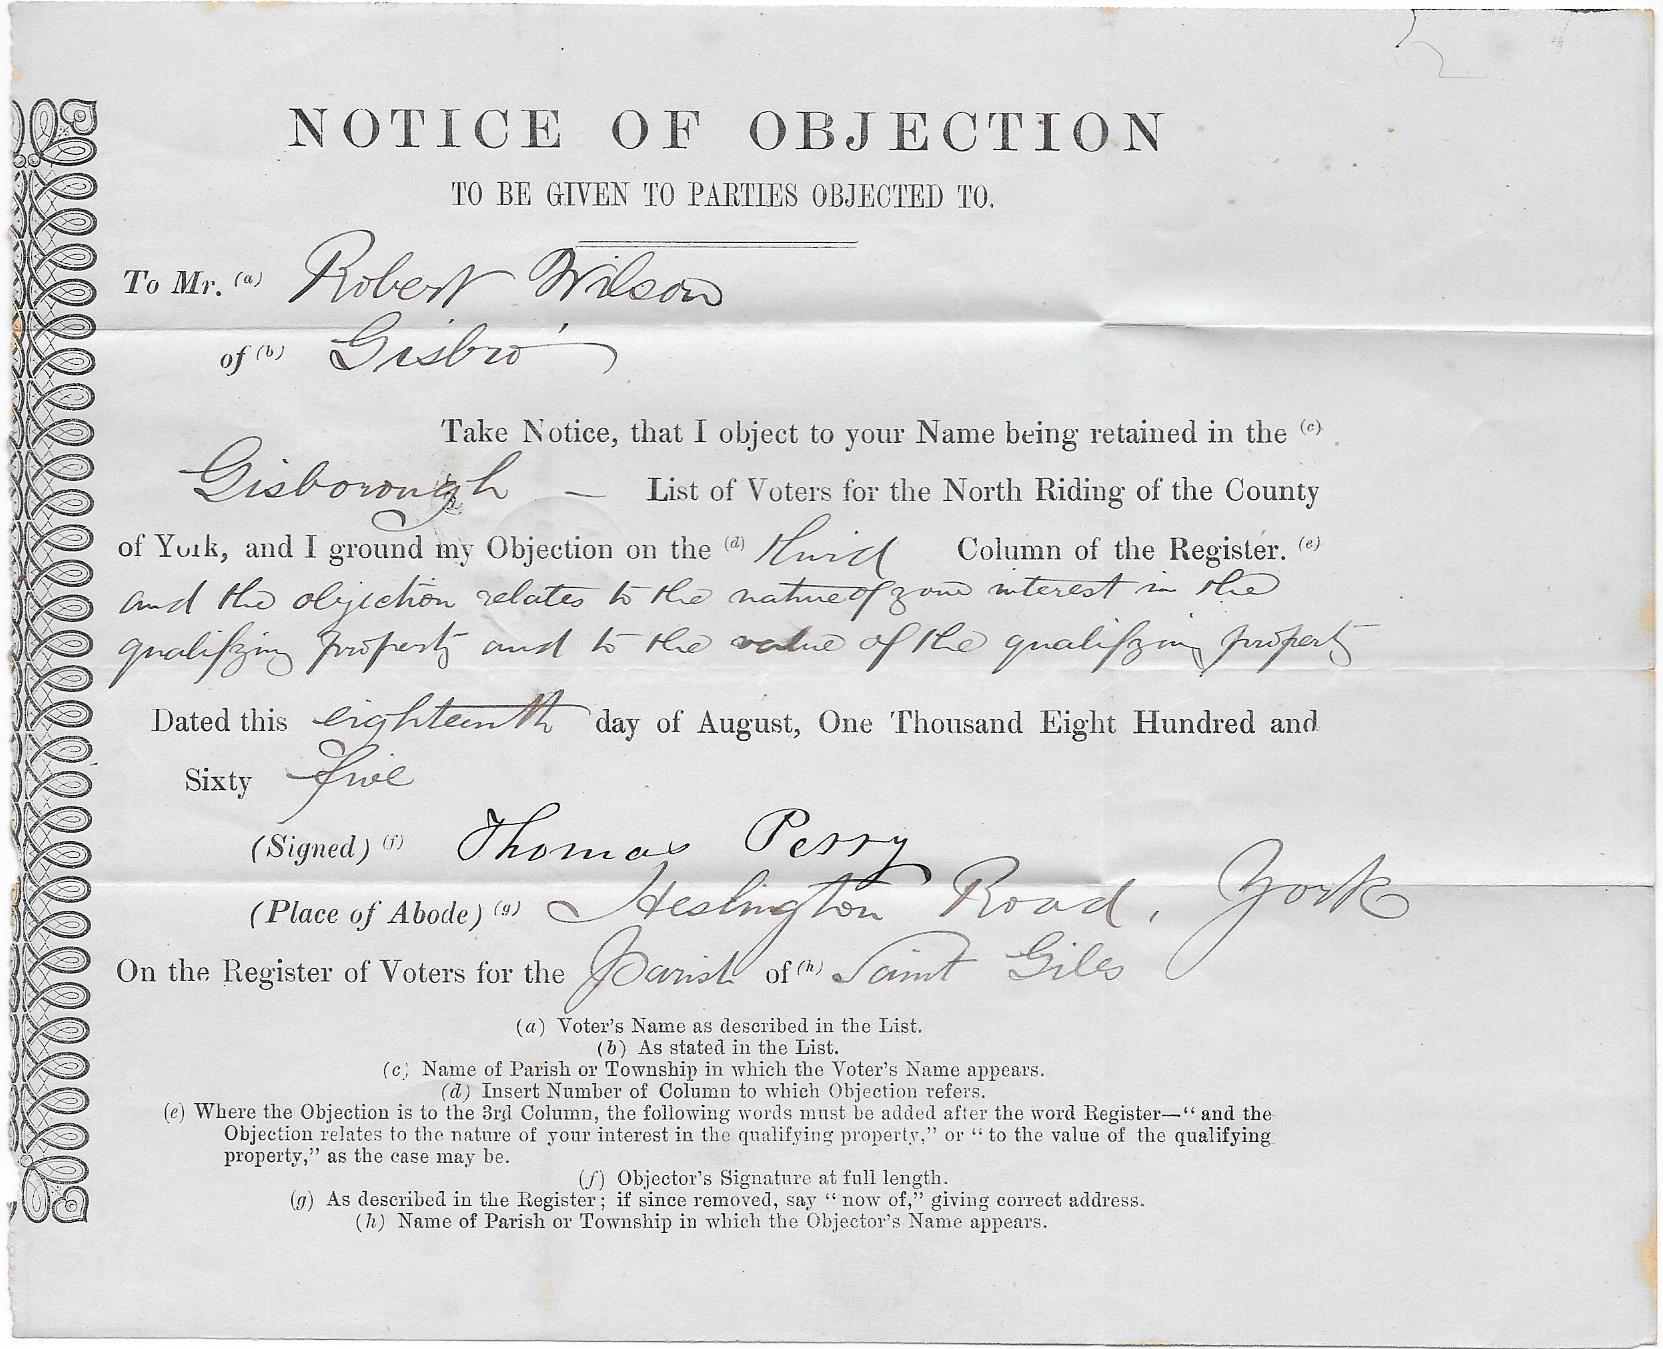 NOTICE OF OBJECTION
TO BE GIVEN TO PARTIES OBJECTED TO.
To Mr. (a) Robert Wilson
of (b) Gisbro'
Take Notice, that I object to your Name being retained in the (c)
Gisborough — List of Voters for the North Riding of the County
of York, and I ground my Objection on the (d) third Column of the Register. (e)
and the objection relates to the nature of your interest in the
qualifying property and to the value of the qualifying property
Dated this eighteenth day of August, One Thousand Eight Hundred and
Sixty five
(Signed) (f) Thomas Perry
(Place of Abode) (g) Heslington Road, York
On the Register of Voters for the Parish of (h) Saint Giles
(a) Voter's Name as described in the List.
(b) As stated in the List.
(c) Name of Parish or Township in which the Voter's Name appears.
(d) Insert Number of Column to which Objection refers.
(e) Where the Objection is to the 3rd Column, the following words must be added after the word Register—“ and the
Objection relates to the nature of your interest in the qualifying property,” or “ to the value of the qualifying
property,” as the case may be.
(f) Objector's Signature at full length.
(g) As described in the Register; if since removed, say “ now of,” giving correct address.
(h) Name of Parish or Township in which the Objector's Name appears.